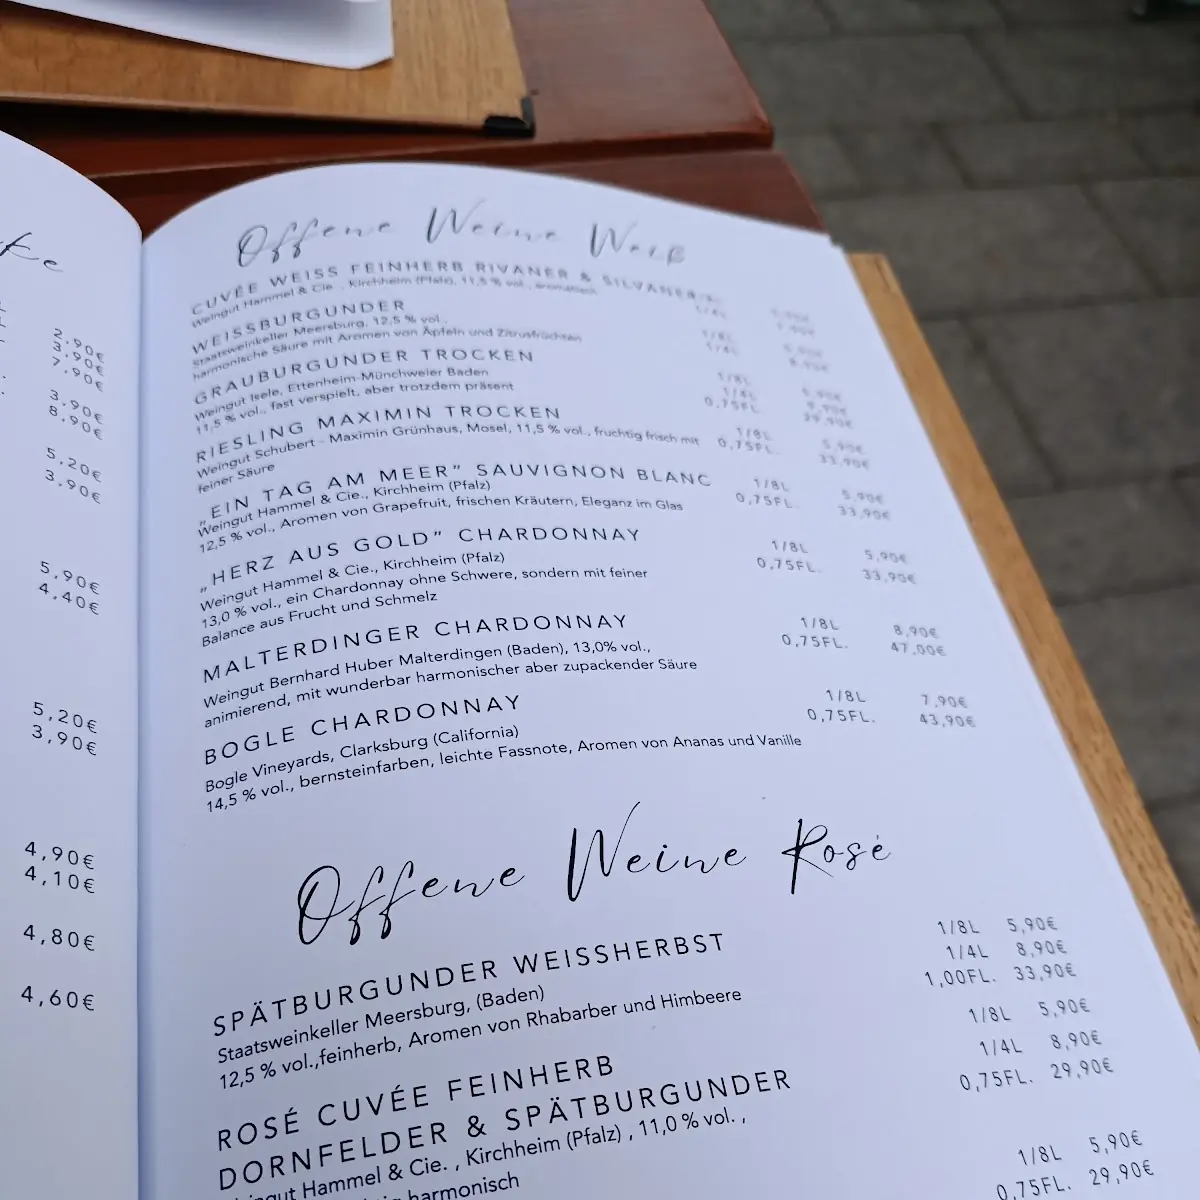 2,90€
3,90€
7,90€
3,90€
8,90€
5,20€
3,90€
5,90€
4,40€
5,20€
3,90€
4,90€
4,10€
4,80€
4,60€
Offene Weine Weiß
CUVÉE WEISS FEINHERB RIVANER & SILVANER
Weingut Hammel & Cie., Kirchheim (Pfalz), 11,5 % vol., aromatisch
1/4L
WEISSBURGUNDER
Staatsweinkeller Meersburg, 12,5 % vol.,
harmonische Säure mit Aromen von Äpfeln und Zitrusfrüchten
1/8L
1/4L
GRAUBURGUNDER TROCKEN
Weingut Isele, Ettenheim-Münchweier Baden
11,5 % vol., fast verspielt, aber trotzdem präsent
1/8L 5,90€
1/4L 8,90€
0,75FL. 29,90€
RIESLING MAXIMIN TROCKEN
Weingut Schubert - Maximin Grünhaus, Mosel, 11,5 % vol., fruchtig frisch mit
feiner Säure
1/8L 5,90€
0,75FL. 33,90€
„EIN TAG AM MEER" SAUVIGNON BLANC
Weingut Hammel & Cie., Kirchheim (Pfalz)
12,5 % vol., Aromen von Grapefruit, frischen Kräutern, Eleganz im Glas
1/8L 5,90€
0,75FL. 33,90€
„HERZ AUS GOLD" CHARDONNAY
Weingut Hammel & Cie., Kirchheim (Pfalz)
13,0 % vol., ein Chardonnay ohne Schwere, sondern mit feiner
Balance aus Frucht und Schmelz
1/8L 5,90€
0,75FL. 33,90€
MALTERDINGER CHARDONNAY
Weingut Bernhard Huber Malterdingen (Baden), 13,0% vol.,
animierend, mit wunderbar harmonischer aber zupackender Säure
1/8L 8,90€
0,75FL. 47,00€
BOGLE CHARDONNAY
Bogle Vineyards, Clarksburg (California)
14,5 % vol., bernsteinfarben, leichte Fassnote, Aromen von Ananas und Vanille
1/8L 7,90€
0,75FL. 43,90€
Offene Weine Rosé
SPÄTBURGUNDER WEISSHERBST
Staatsweinkeller Meersburg, (Baden)
12,5 % vol.,feinherb, Aromen von Rhabarber und Himbeere
1/8L 5,90€
1/4L 8,90€
1,00FL. 33,90€
ROSÉ CUVÉE FEINHERB
DORNFELDER & SPÄTBURGUNDER
Hammel & Cie. , Kirchheim (Pfalz) , 11,0 % vol. ,
harmonisch
1/8L 5,90€
1/4L 8,90€
0,75FL. 29,90€
1/8L 5,90€
0,75FL. 29,90€